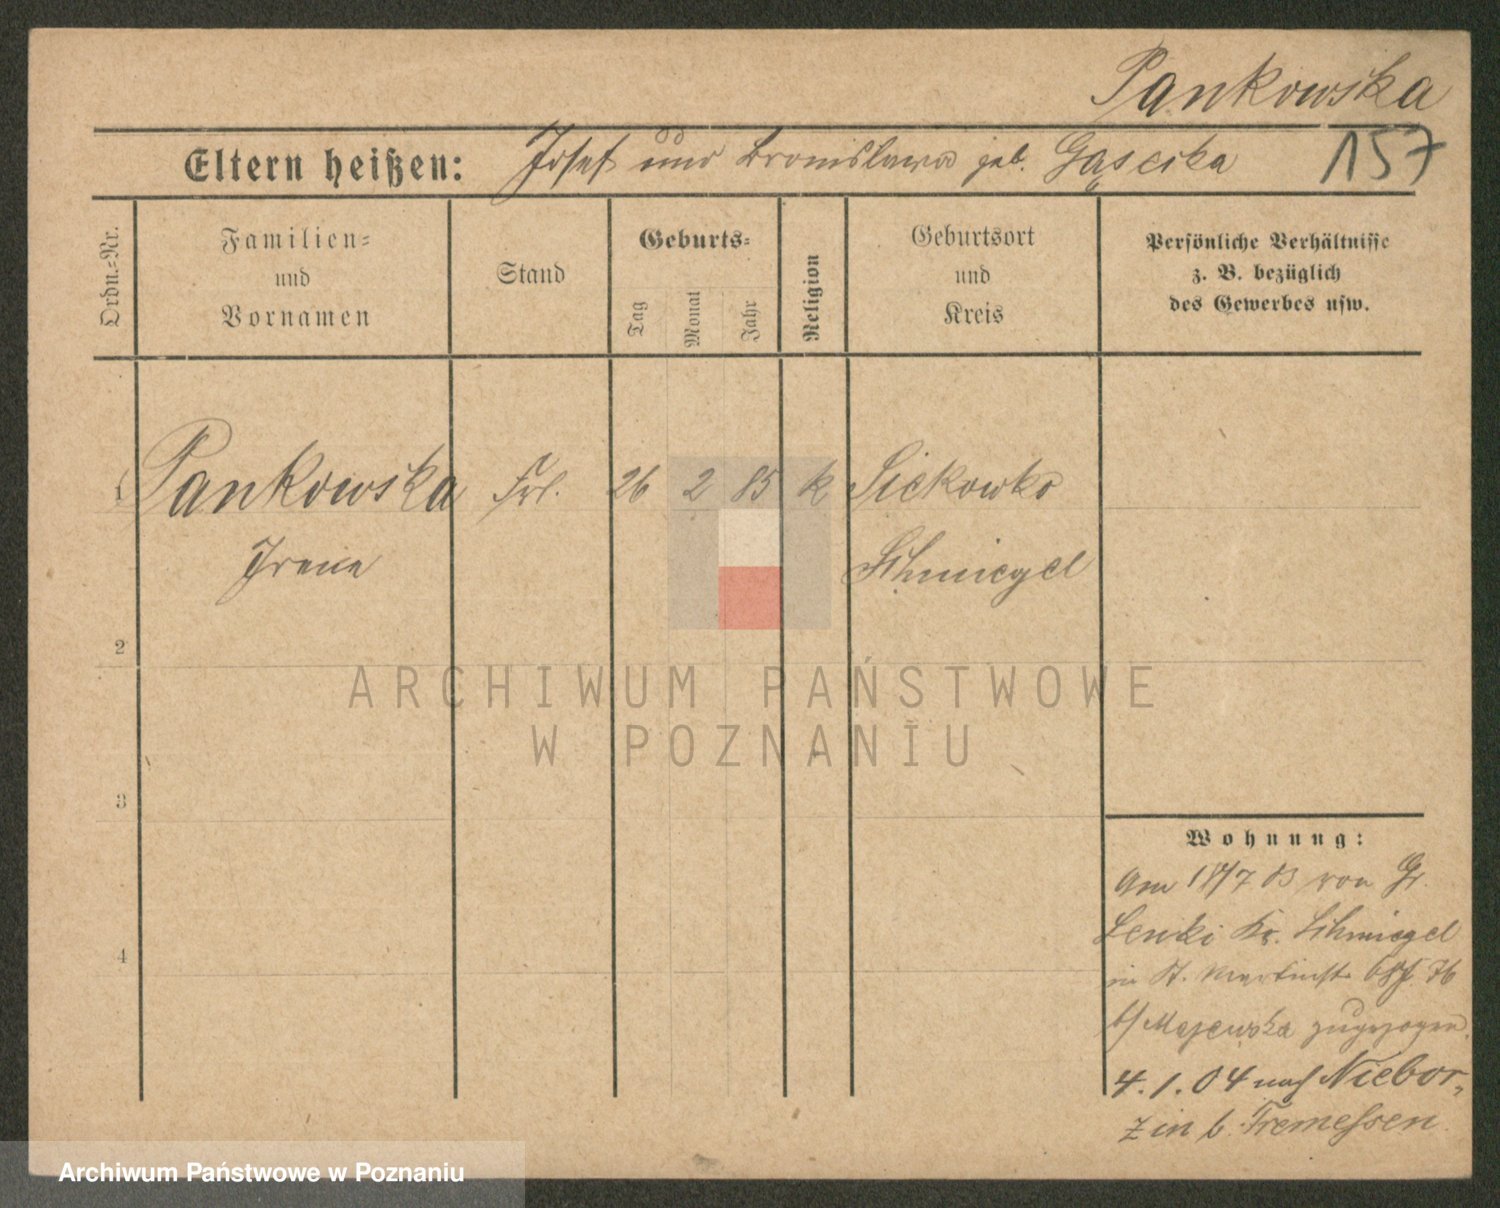 Pankowska
157
Eltern heißen: Josef und Bronislawa geb. Gąsecka
Ordn.-Nr.
Familien-
und
Vornamen
Stand
Geburts-
Tag
Monat
Jahr
Religion
Geburtsort
und
Kreis
Persönliche Verhältnisse
z. B. bezüglich
des Gewerbes usw.
1 Pankowska Frl. 26 2 85 k Siekowko
Irena Schmiegel
2
3
4
Wohnung:
Am 18/7 03 von Gr.
Lenki Kr. Schmiegel
in St. Martinstr
b/ Majewska zugezogen.
4.1.04 nach Niebor-
zin b. Tremessen.
ARCHIWUM PAŃSTWOWE
W POZNANIU
Archiwum Państwowe w Poznaniu